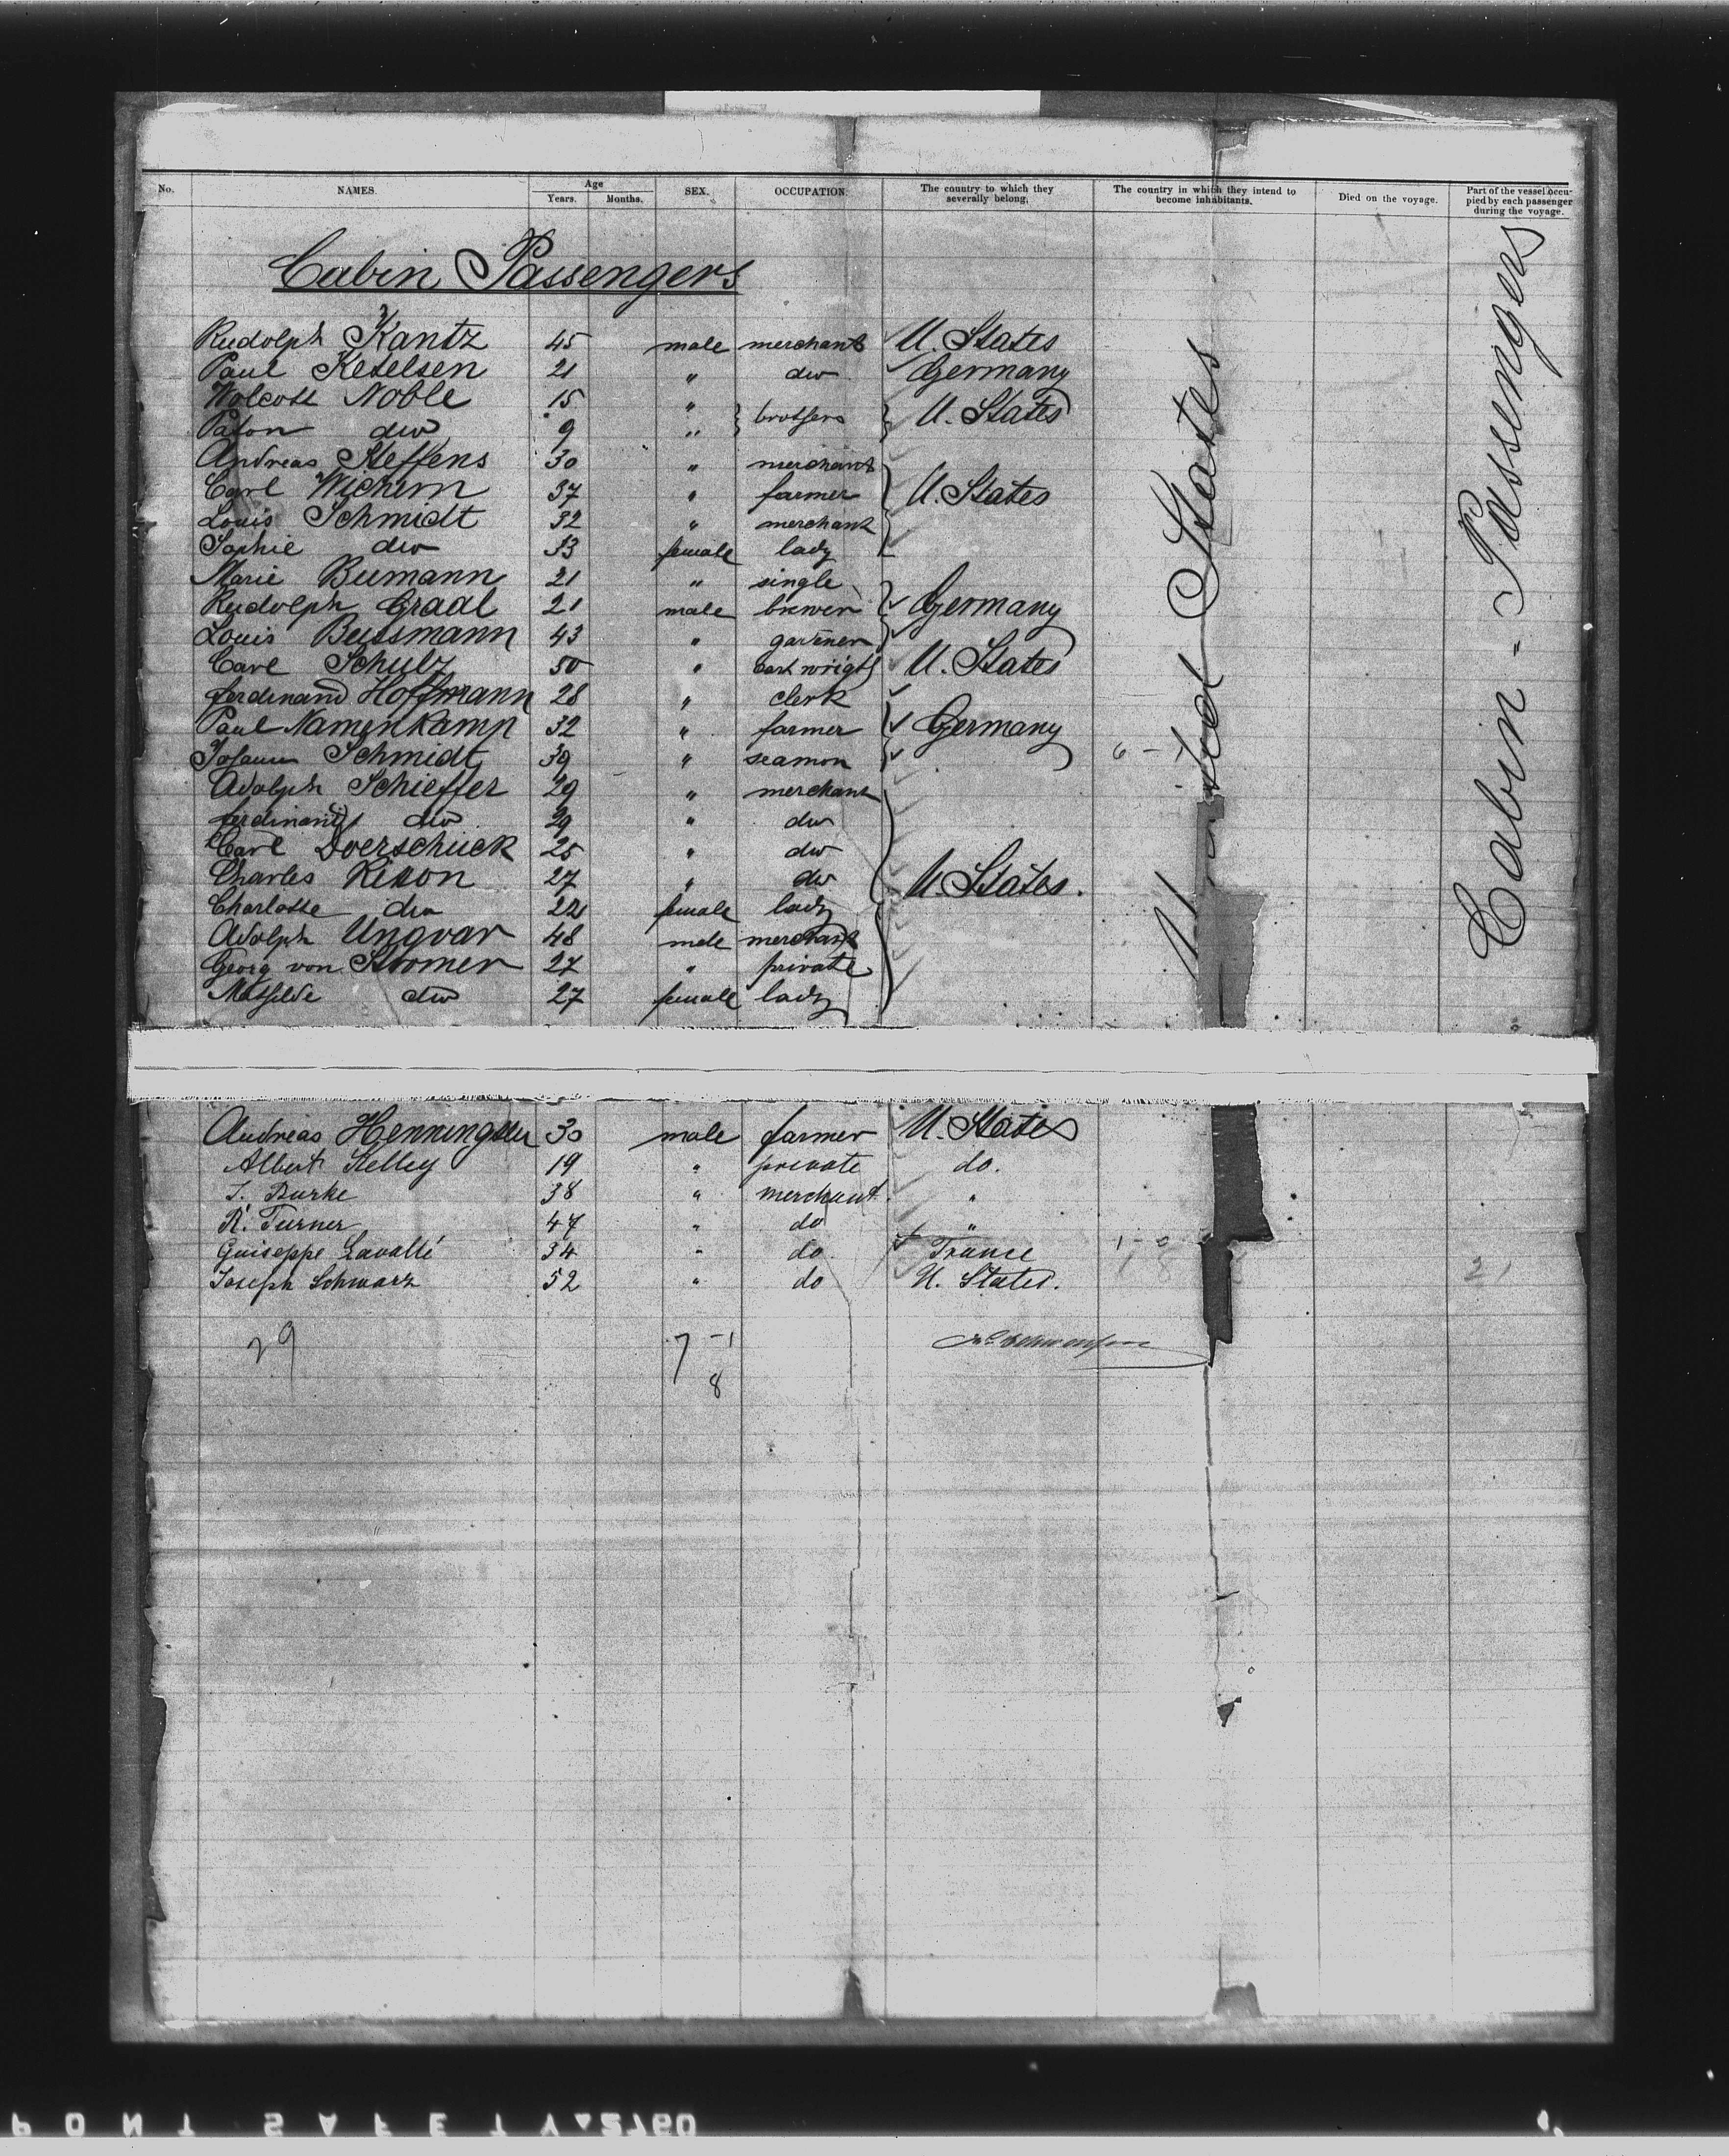 No. NAMES. Age Years. Months. SEX. OCCUPATION. The country to which they severally belong. The country in which they intend to become inhabitants. Died on the voyage. Part of the vessel occupied by each passenger during the voyage.
Cabin Passengers
Rudolph Kantz 45 male merchant U. States
Paul Ketelsen 21 " do Germany
Wolcott Noble 15 " brothers U. States
Paton do 9 "
Andreas Steffens 30 " merchant
Carl Wichern 37 " farmer U. States
Louis Schmidt 32 " merchant
Sophie do 33 female lady
Marie Bumann 21 " single
Rudolph Graal 21 male brewer Germany
Louis Bussmann 43 " gardener
Carl Schulz 50 " U. States
Ferdinand Hoffmann 28 " clerk
Paul Namenkamp 32 " farmer Germany 6 -
Johann Schmidt 39 " seaman
Adolph Schieffer 29 " merchant
Ferdinand do 29 " do
Carl Doerschuck 25 " do
Charles 27 " do U. States.
Charlotte do 22 female lady
Adolph Ungvar 48 male merchant
Georg von Stromer 27 " private
Mathilde do 27 female lady
States
Cabin - Passengers
Andreas Henningsen 30 male farmer U. States
Albert Kelley 19 " private do.
Burke 38 " merchant "
R. Turner 47 " do "
Guiseppe Lavallé 34 " do France 1 - 0
Joseph Schwarz 52 " do U. States. 2
29 7 -1
8
PONT SAFETY 2760